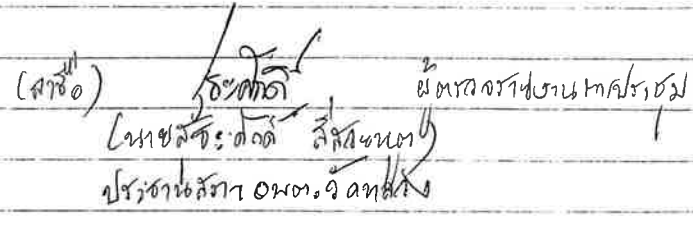 (ลงชื่อ) สุระศักดิ์ ผู้ตรวจรายงานการประชุม
(นายสุระศักดิ์
ประธานสภา อบต.วัดหลวง